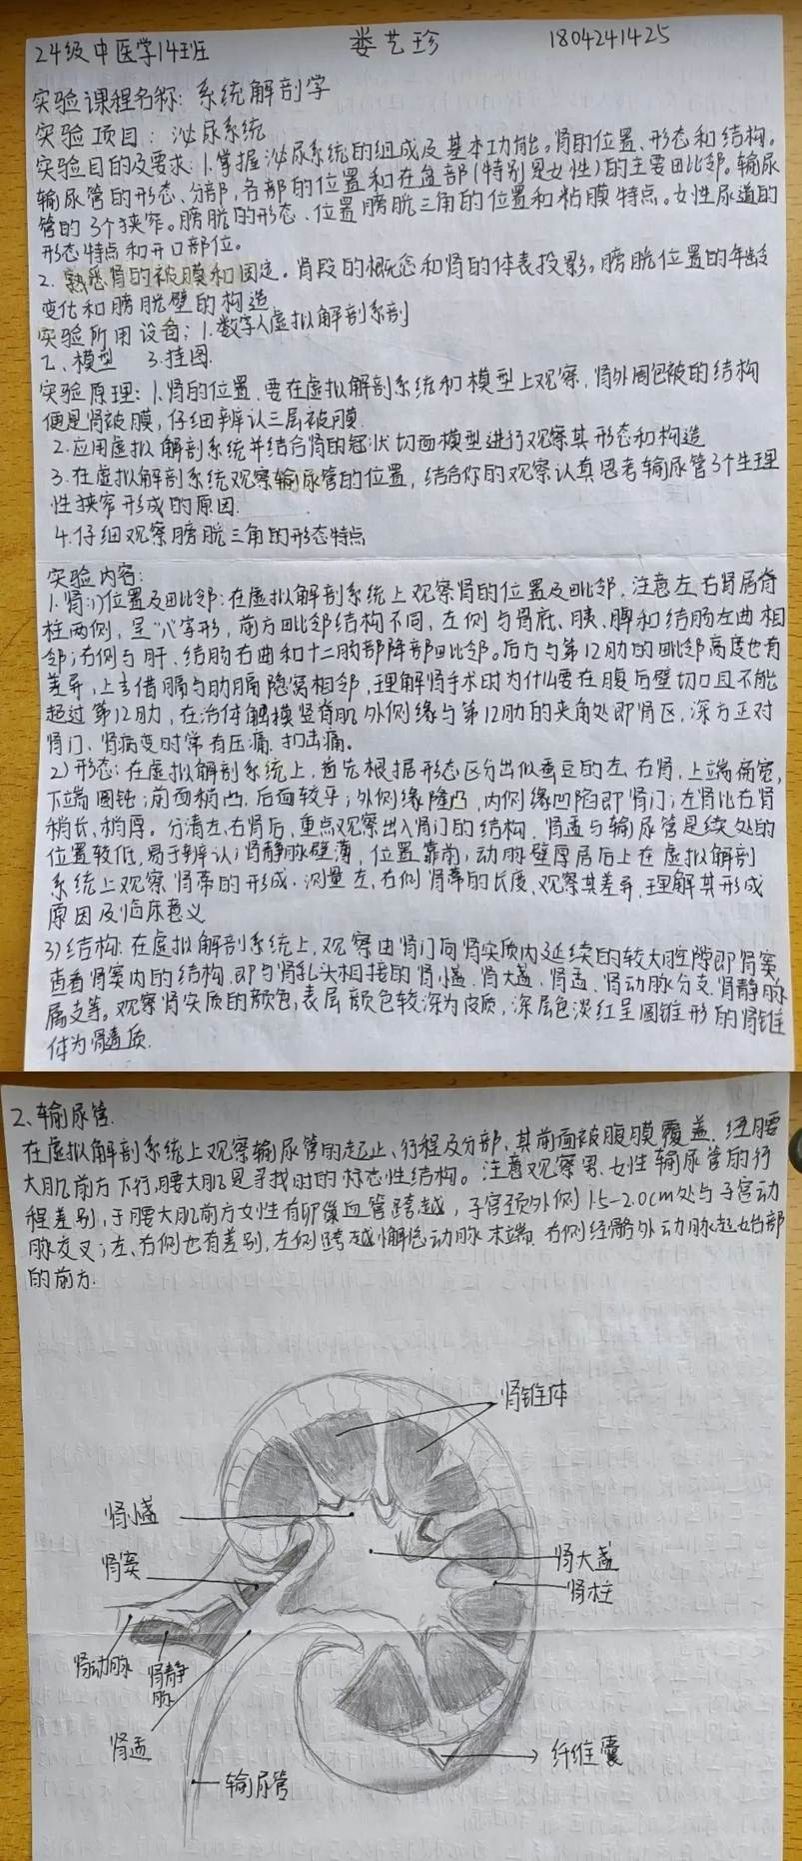 24级中医学14班 娄艺珍 1804241425
实验课程名称：系统解剖学
实验项目：泌尿系统
实验目的及要求：1.掌握泌尿系统的组成及基本功能。肾的位置、形态和结构。
输尿管的形态、分部，各部的位置和在盆部(特别是女性)的主要毗邻。输尿
管的3个狭窄。膀胱的形态、位置膀胱三角的位置和粘膜特点。女性尿道的
形态特点和开口部位。
2.熟悉肾的被膜和固定。肾段的概念和肾的体表投影。膀胱位置的年龄
变化和膀胱壁的构造
实验所用设备：1.数字人虚拟解剖系剖
2、模型 3.挂图.
实验原理：1.肾的位置.要在虚拟解剖系统和模型上观察，肾外周包被的结构
便是肾被膜，仔细辨认三层被膜.
2.应用虚拟解剖系统并结合肾的冠状切面模型进行观察其形态和构造
3.在虚拟解剖系统观察输尿管的位置，结合你的观察认真思考输尿管3个生理
性狭窄形成的原因.
4.仔细观察膀胱三角的形态特点
实验内容：
1.肾:1)位置及毗邻：在虚拟解剖系统上观察肾的位置及毗邻.注意左、右肾居脊
柱两侧，呈"八"字形，前方毗邻结构不同，左侧与胃底、胰、脾和结肠左曲相
邻;右侧与肝、结肠右曲和十二肠部降部毗邻。后方与第12肋的毗邻高度也有
差异，上方借膈与肋膈隐窝相邻，理解肾手术时为什么要在腹后壁切口且不能
超过第12肋，在活体触摸竖脊肌外侧缘与第12肋的夹角处即肾区，深方正对
肾门、肾病变时常有压痛、扣击痛。
2)形态：在虚拟解剖系统上，首先根据形态区分出似蚕豆的左、右肾，上端扁宽，
下端圆钝;前面稍凸，后面较平;外侧缘隆凸，内侧缘凹陷即肾门;左肾比右肾
稍长、稍厚。分清左、右肾后，重点观察出入肾门的结构.肾盂与输尿管是续处的
位置较低，易于辨认;肾静脉壁薄，位置靠前，动脉壁厚居后上在虚拟解剖
系统上观察肾蒂的形成.测量左、右侧肾蒂的长度、观察其差异，理解其形成
原因及临床意义
3)结构：在虚拟解剖系统上，观察由肾门向肾实质内延续的较大腔隙即肾窦，
查看肾窦内的结构.即与肾乳头相接的肾小盏、肾大盏、肾盂、肾动脉分支、肾静脉
属支等。观察肾实质的颜色，表层颜色较深为皮质，深层色淡红呈圆锥形的肾锥
体为髓质.
2、输尿管.
在虚拟解剖系统上观察输尿管的起止、行程及分部，其前面被腹膜覆盖.经腰
大肌前方下行，腰大肌是寻找时的标志性结构。注意观察男、女性输尿管的行
程差别，于腰大肌前方女性有卵巢血管跨越，子宫颈外侧1.5-2.0cm处与子宫动
脉交叉;左、右侧也有差别，左侧跨越髂总动脉末端.右侧经髂外动脉起始部
的前方.
肾锥体
肾小盏
肾窦
肾大盏
肾柱
肾动脉
肾静
脉
肾盂
纤维囊
输尿管